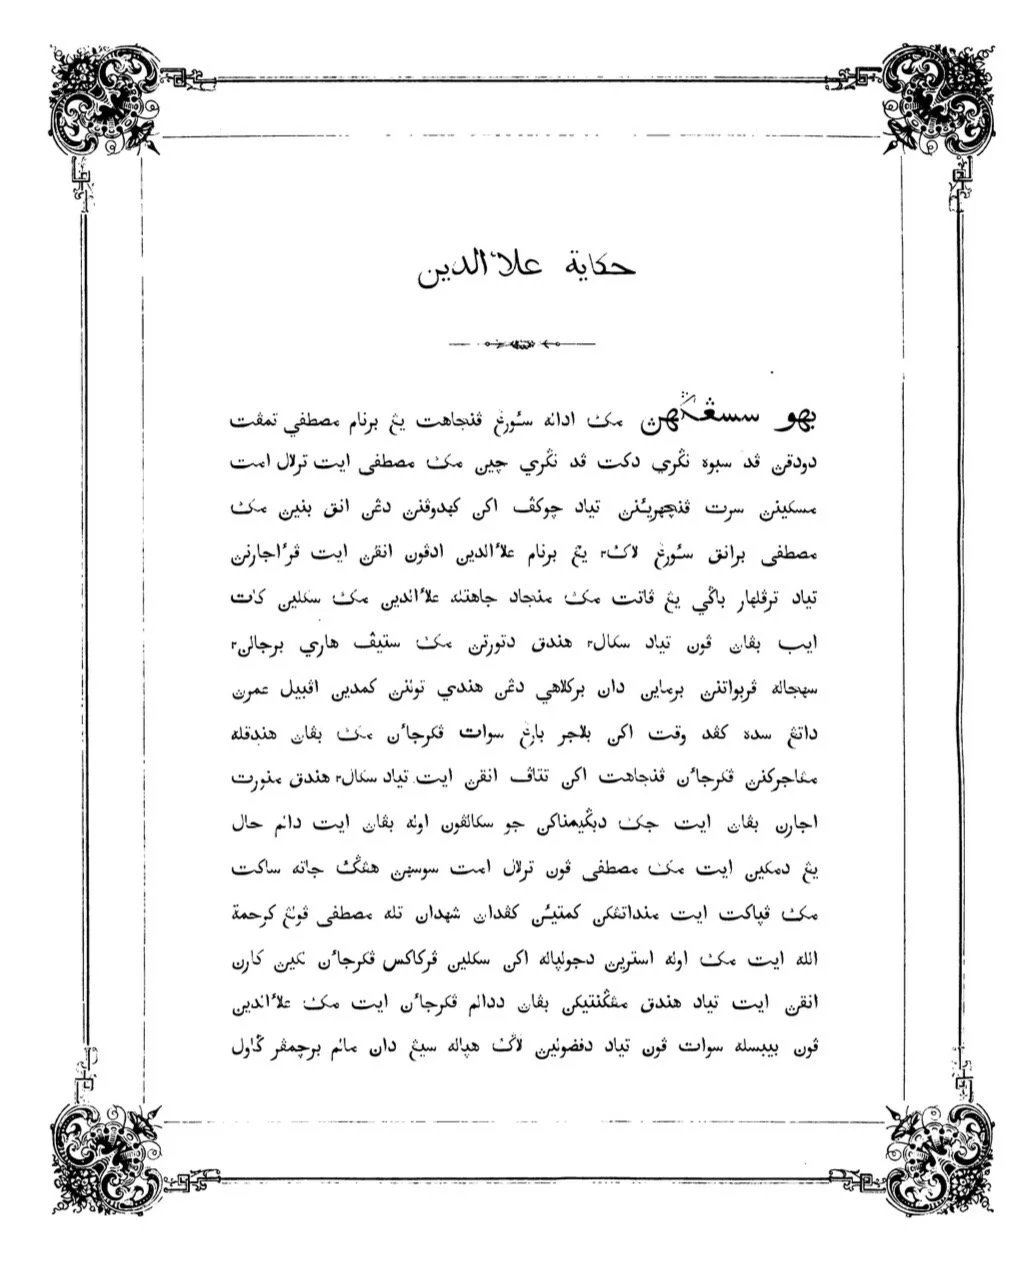 حكاية علاءالدين
بهو سسڠݢهن مک اداله سٔورڠ ڤنجاهت يڠ برنام مصطفي تمڤت
دودقن ڤد سبوه نݢري دکت ڤد نݢري چين مک مصطفى ايت ترلال امت
مسکينن سرت ڤنچهريئنن تياد چوکڤ اکن کهدوڤنن دڠن انق بنين مک
مصطفى برانق سٔورڠ لاک٢ يڠ برنام علاءالدين ادڤون انقن ايت ڤرءاجارنن
تياد ترڤلهار باݢي يڠ ڤاتت مک منجاد جاهتله علاءالدين مک سکلين کات
ايب بڤان ڤون تياد سکال٢ هندق دتورتن مک ستيڤ هاري برجالن٢
سهجاله ڤربواتنن برماين دان برکلاهي دڠن هندي تولنن کمدين اڤبيل عمرن
داتڠ سده کڤد وقت اکن بلاجر بارڠ سوات ڤکرجاءن مک بڤان هندقله
مڠاجرکنن ڤکرجاءن ڤنجاهت اکن تتاڤ انقن ايت تياد سکال٢ هندق منورت
اجارن بڤان ايت جک دبݢيمناکن جو سکالڤون اوله بڤان ايت دالم حال
يڠ دمکين ايت مک مصطفى ڤون ترلال امت سوسهن هڠݢ جاته ساکت
مک ڤپاکت ايت منداتڠکن کمتيئن کڤدان شهدان تله مصطفى ڤولڠ کرحمة
الله ايت مک اوله استرين دجولپاله اکن سکلين ڤرکاکس ڤکرجاءن لکين کارن
انقن ايت تياد هندق مڠݢنتيکن بڤان ددالم ڤکرجاءن ايت مک علاءالدين
ڤون بيبسله سوات ڤون تياد دفضولين لاݢ هپاله سيڠ دان مالم برچمڤر ݢاول